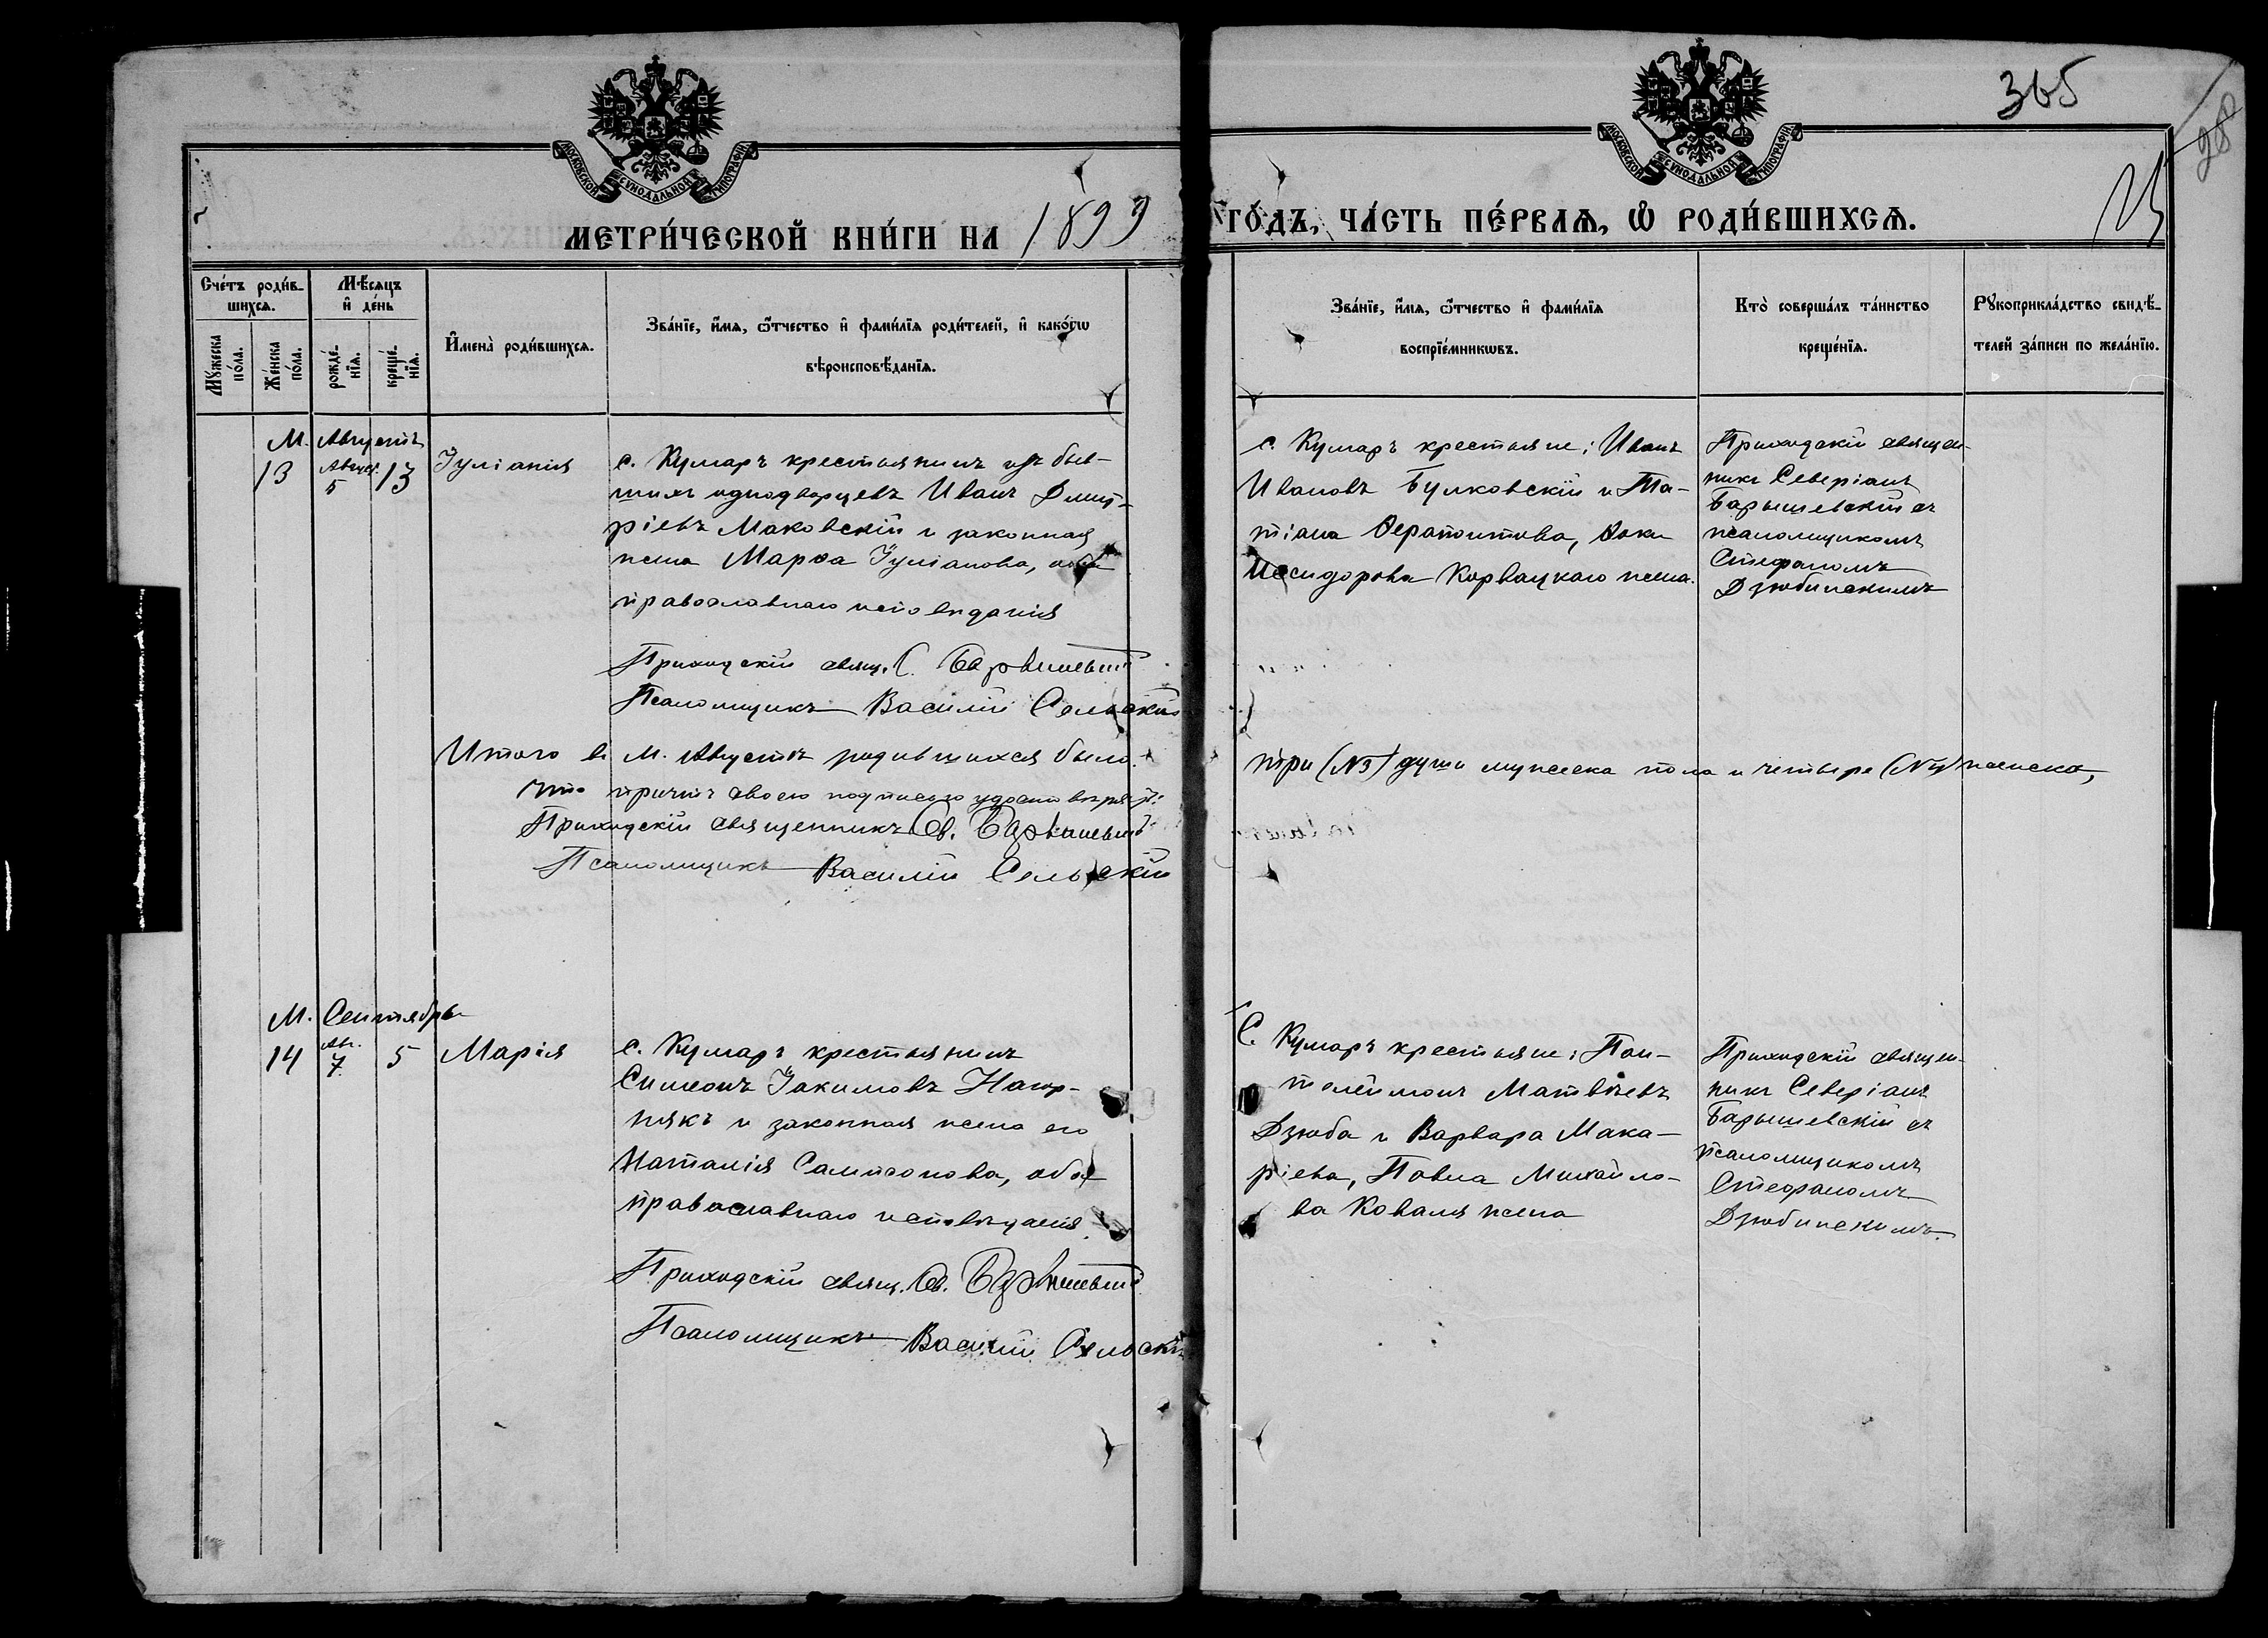 365
28
МОСКОВСКОЙ СѴНОДАЛЬНОЙ ТИПОГРАФІИ
МОСКОВСКОЙ СѴНОДАЛЬНОЙ ТИПОГРАФІИ
МЕТРИ́ЧЕСКОЙ КНИ́ГИ НА 1899
ГО́ДЪ, ЧА́СТЬ ПЕ́РВАѦ, Ѡ҆ РОДИ́ВШИХСѦ.
Сче́тъ роди́в-
шихсѧ.
Мꙋ́жеска
по́ла.
Же́нска
по́ла.
Мѣ́сѧцъ
и҆ де́нь
рожде́-
нїѧ.
креще́-
нїѧ.
И҆мена̀ роди́вшихсѧ.
Зва́нїе, и҆́мѧ, ѻ҆́тчество и҆ фами́лїѧ роди́телей, и҆ како́гѡ
вѣроисповѣ́данїѧ.
Зва́нїе, и҆́мѧ, ѻ҆́тчество и҆ фами́лїѧ
воспрїе́мникѡвъ.
Кто̀ соверша́лъ та́инство
креще́нїѧ.
Рꙋкоприкла́дство свидѣ́-
телей за́писи по жела́нїю.
М. Августъ
13 Август. 5 13 Іуліанія
с. Кумаръ крестьянинъ изъ быв-
шихъ однодворцевъ Иванъ Дмит-
ріевъ Маковскій и законная
жена Марѳа Іуліанова, оба
православнаго исповѣданія
Приходскій свящ. С. Барышевскій
Псаломщикъ Василій Сельскій
с. Кумаръ крестьяне: Иванъ
Ивановъ Булковскій и Та-
тіана Ѳерапонтова,
Исидорова Корвацкаго жена.
Приходскій священ-
никъ Северіанъ
Барышевскій съ
псаломщикомъ
Стефаномъ
Дзюбинскимъ
Итого въ М. Августѣ родившихся было:
три (№3) души мужеска пола и четыре (№4) женска,
что причтъ своею подписью удостовѣряетъ:
Приходскій священникъ Св. Барышевскій
Псаломщикъ Василій Сельскій
М. Сентябрь
14 Ав. 7. 5 Марія
с. Кумаръ крестьянинъ
Симеонъ Іакимовъ Нагор-
някъ и законная жена его
Наталія Сампсонова, оба
православнаго исповѣданія.
Приходскій свящ. Св. Барышевскій
Псаломщикъ Василій Сельскій
С. Кумаръ крестьяне: Пан-
телеймонъ Матвѣевъ
Дзюба и Варвара Мака-
ріева, Павла Михайло-
ва Коваля жена
Приходскій священ-
никъ Северіанъ
Барышевскій съ
псаломщикомъ
Стефаномъ
Дзюбинскимъ.